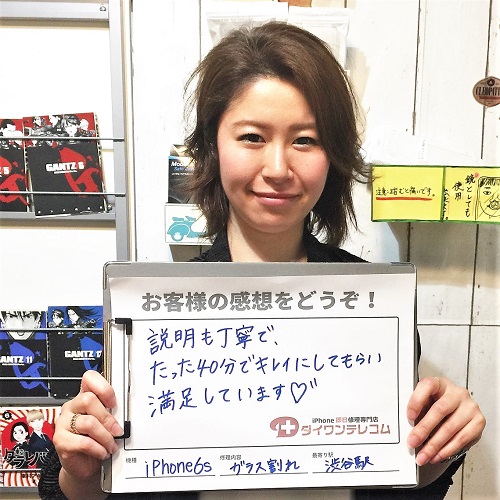 お客様の感想をどうぞ！
説明も丁寧で、
たった40分でキレイにしてもらい
満足しています♡
iPhone 即日修理専門店
ダイワンテレコム
機種 iPhone6s 修理内容 ガラス割れ 最寄り駅 渋谷駅
GANTZ 5
GANTZ 6
GANTZ/11
GANTZ/12
CLEOPATR
鏡としても
使用